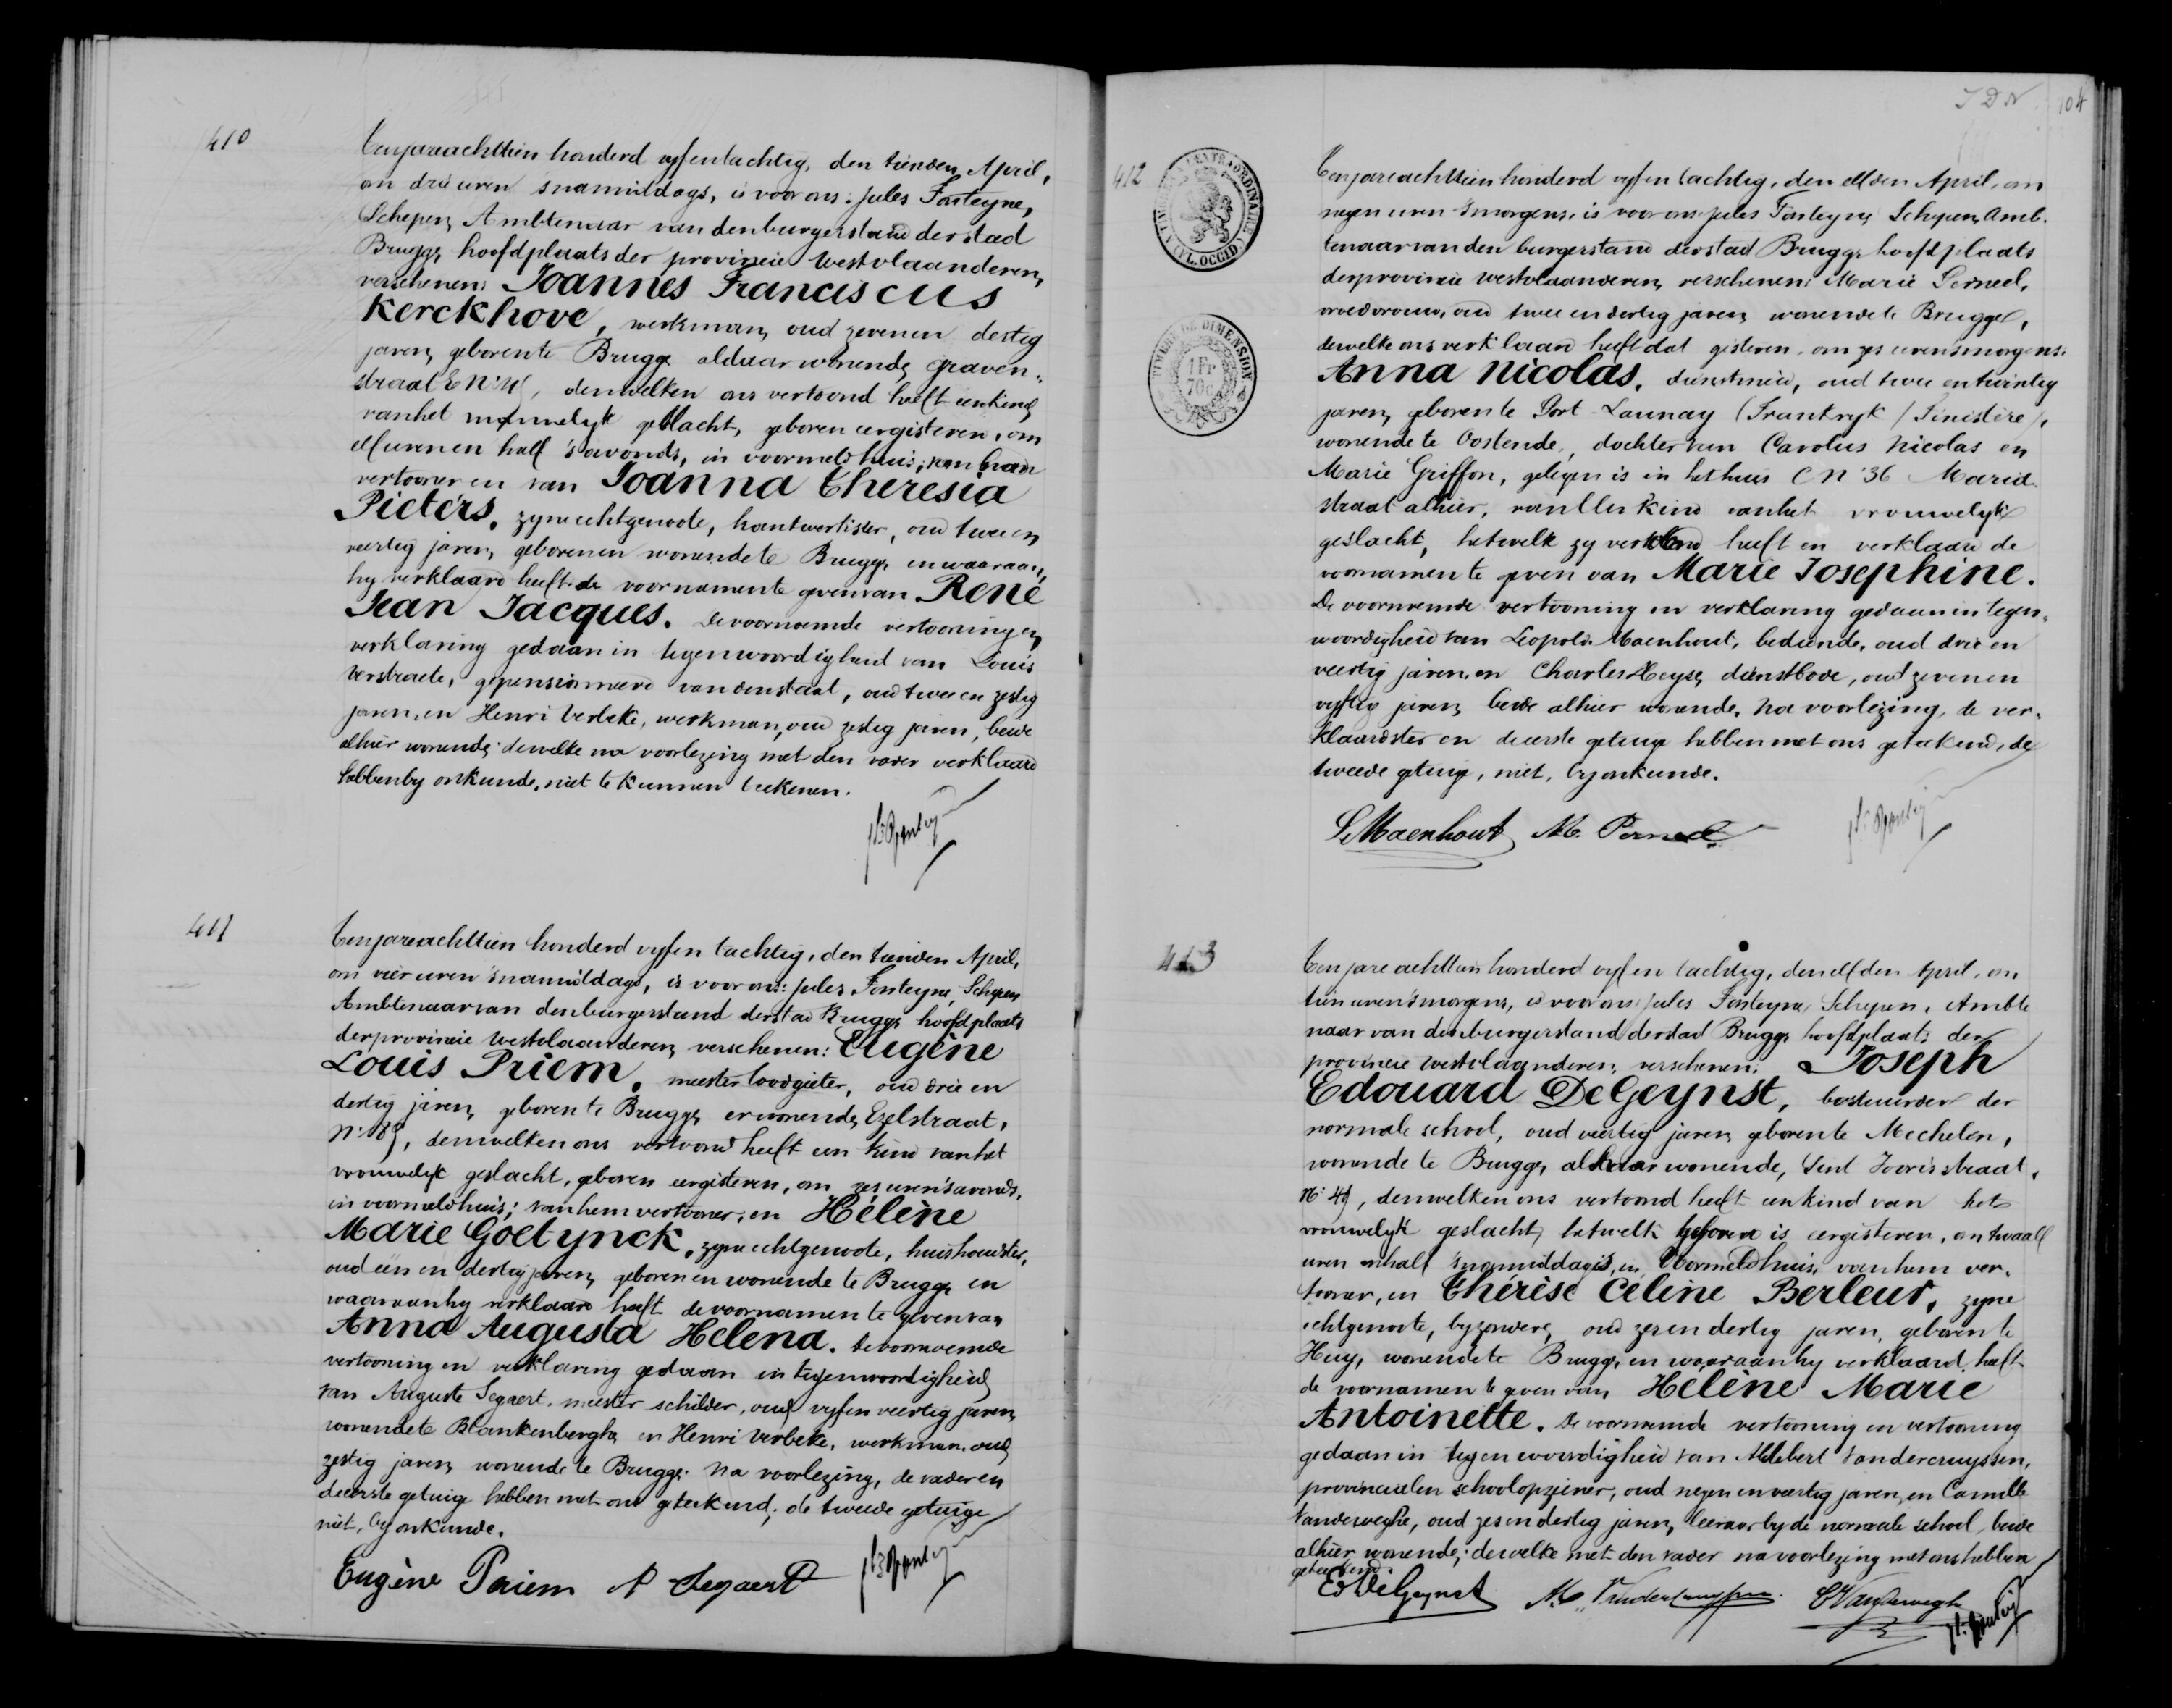 410
Ten jare achttien honderd vyfentachtig, den tienden April,
om drie uren 'snamiddags, is voor ons: Jules Fonteyne,
Schepen, Ambtenaar van den burgerstand der stad
Brugge, hoofdplaats der provincie Westvlaanderen,
verschenen: Joannes Franciscus
Kerckhove, werkman, oud zevenen dertig
jaren, geboren te Brugge aldaar wonende, Graven-
straat E N:, denwelken ons vertoond heeft een kind
van het mannelyk geslacht, geboren eergisteren, om
elf uren en half 's avonds, in voormeld huis; van hem
vertooner en van Joanna Theresia
Pieters, zyne echtgenoote, kantwerkster, oud twee en
veertig jaren, geboren en wonende te Brugge en waaraan,
hy verklaard heeft de voornamen te geven van René
Jean Jacques. De voornoemde vertooning en
verklaring gedaan in tegenwoordigheid van Louis
Verstraete, gepensionneerd van den staat, oud twee en zestig
jaren, en Henri Verbeke, werkman, oud zestig jaren, beide
alhier wonende; dewelke na voorlezing met den vader verklaard
hebben by onkunde, niet te kunnen teekenen.
411
Ten jare achttien honderd vyfen tachtig, den tienden April,
om vier uren 'snamiddags, is voor ons: Jules Fonteyne, Schepen
Ambtenaar van den burgerstand der stad Brugge hoofdplaats
der provincie Westvlaanderen, verschenen: Eugène
Louis Priem, meester loodgieter, oud drie en
dertig jaren, geboren te Brugge, er wonende, Ezelstraat,
N:, denwelken ons vertoond heeft een kind van het
vrouwelyk geslacht, geboren eergisteren, om zes uren 's avonds,
in voormeld huis; van hem vertooner, en Hélène
Marie Goetynck, zyne echtgenoote, huishoudster,
oud een en dertig jaren, geboren en wonende te Brugge en
waaraan hy verklaard heeft de voornamen te geven van
Anna Augusta Helena. De voornoemde
vertooning en verklaring gedaan in tegenwoordigheid
van Auguste Segaert, meester schilder, oud vyfen veertig jaren,
wonende te Blankenberghe en Henri Verbeke, werkman, oud
zestig jaren, wonende te Brugge. Na voorlezing, de vader en
de eerste getuige hebben met ons geteekend; de tweede getuige
niet, by onkunde.
Eugène Priem A Segaert
104
412
TIMBRE EXTRAORDINAIRE FL. OCCID
TIMBRE DE DIMENSION
1 Fr
70c
Ten jare achttien honderd vyfen tachtig, den elfden April, om
negen uren 'smorgens, is voor ons Jules Fonteyne Schepen, Amb-
tenaar van den burgerstand der stad Brugge hoofdplaats
der provincie Westvlaanderen, verschenen: Marie Perneel,
vroedvrouw, oud twee en dertig jaren, wonende te Brugge,
dewelke ons verklaard heeft dat gisteren, om zes uren 'smorgens:
Anna Nicolas, dienstmeid, oud twee en twintig
jaren, geboren te Port-Launay (Frankryk / Finistère),
wonende te Oostende, dochter van Carolus Nicolas en
Marie Griffon, gelegen is in het huis C N° 36 Maria
straat alhier, van een kind van het vrouwelyk
geslacht, hetwelk zy vertoond heeft en verklaard de
voornamen te geven van Marie Josephine.
De voornoemde vertooning en verklaring gedaan in tegen-
woordigheid van Leopold Maenhout, bediende, oud drie en
veertig jaren, en Charles Heyse, dienstbode, oud zevenen
vyftig jaren, beide alhier wonende. Na voorlezing, de ver-
klaardster en de eerste getuige hebben met ons geteekend, de
tweede getuige, niet, by onkunde.
L. Maenhout M. Perneel
413
Ten jare achttien honderd vyfen tachtig, den elfden April, om
tien uren 'smorgens, is voor ons Jules Fonteyne, Schepen, Ambte
naar van den burgerstand der stad Brugge hoofdplaats der
provincie Westvlaanderen, verschenen: Joseph
Edouard De Geynst, bestuurder der
normale school, oud veertig jaren, geboren te Mechelen,
wonende te Brugge, aldaar wonende, Sint Joorisstraat,
N:, denwelken ons vertoond heeft een kind van het
vrouwelyk geslacht, hetwelk geboren is eergisteren, om twaalf
uren en half 'snamiddags, in voormeld huis, van hem ver-
tooner, en Thérèse Céline Berleur, zyne
echtgenoote, byzondere, oud zes en dertig jaren, geboren te
Huy, wonende te Brugge, en waaraan hy verklaard heeft
de voornamen te geven van Hélène Marie
Antoinette. De voornoemde vertooning en vertooning
gedaan in tegenwoordigheid van Aldebert Vandercruyssen,
provincialen schoolopziener, oud negen en veertig jaren, en Camille
Vanderweghe, oud zes en dertig jaren, leeraar by de normale school, beide
alhier wonende; dewelke met den vader na voorlezing met ons hebben
geteekend.
Ed DeGeynst